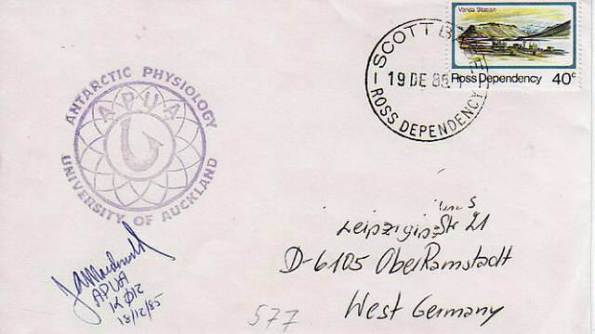 Vanda Station
Ross Dependency 40c
SCOTT B
19 DE 85
ROSS DEPENDENCY
ANTARCTIC PHYSIOLOGY
APUA
UNIVERSITY OF AUCKLAND
Leipzigerstr 21
D-6105 OberRamstadt
West Germany
APUA
K012
13/12/85
577